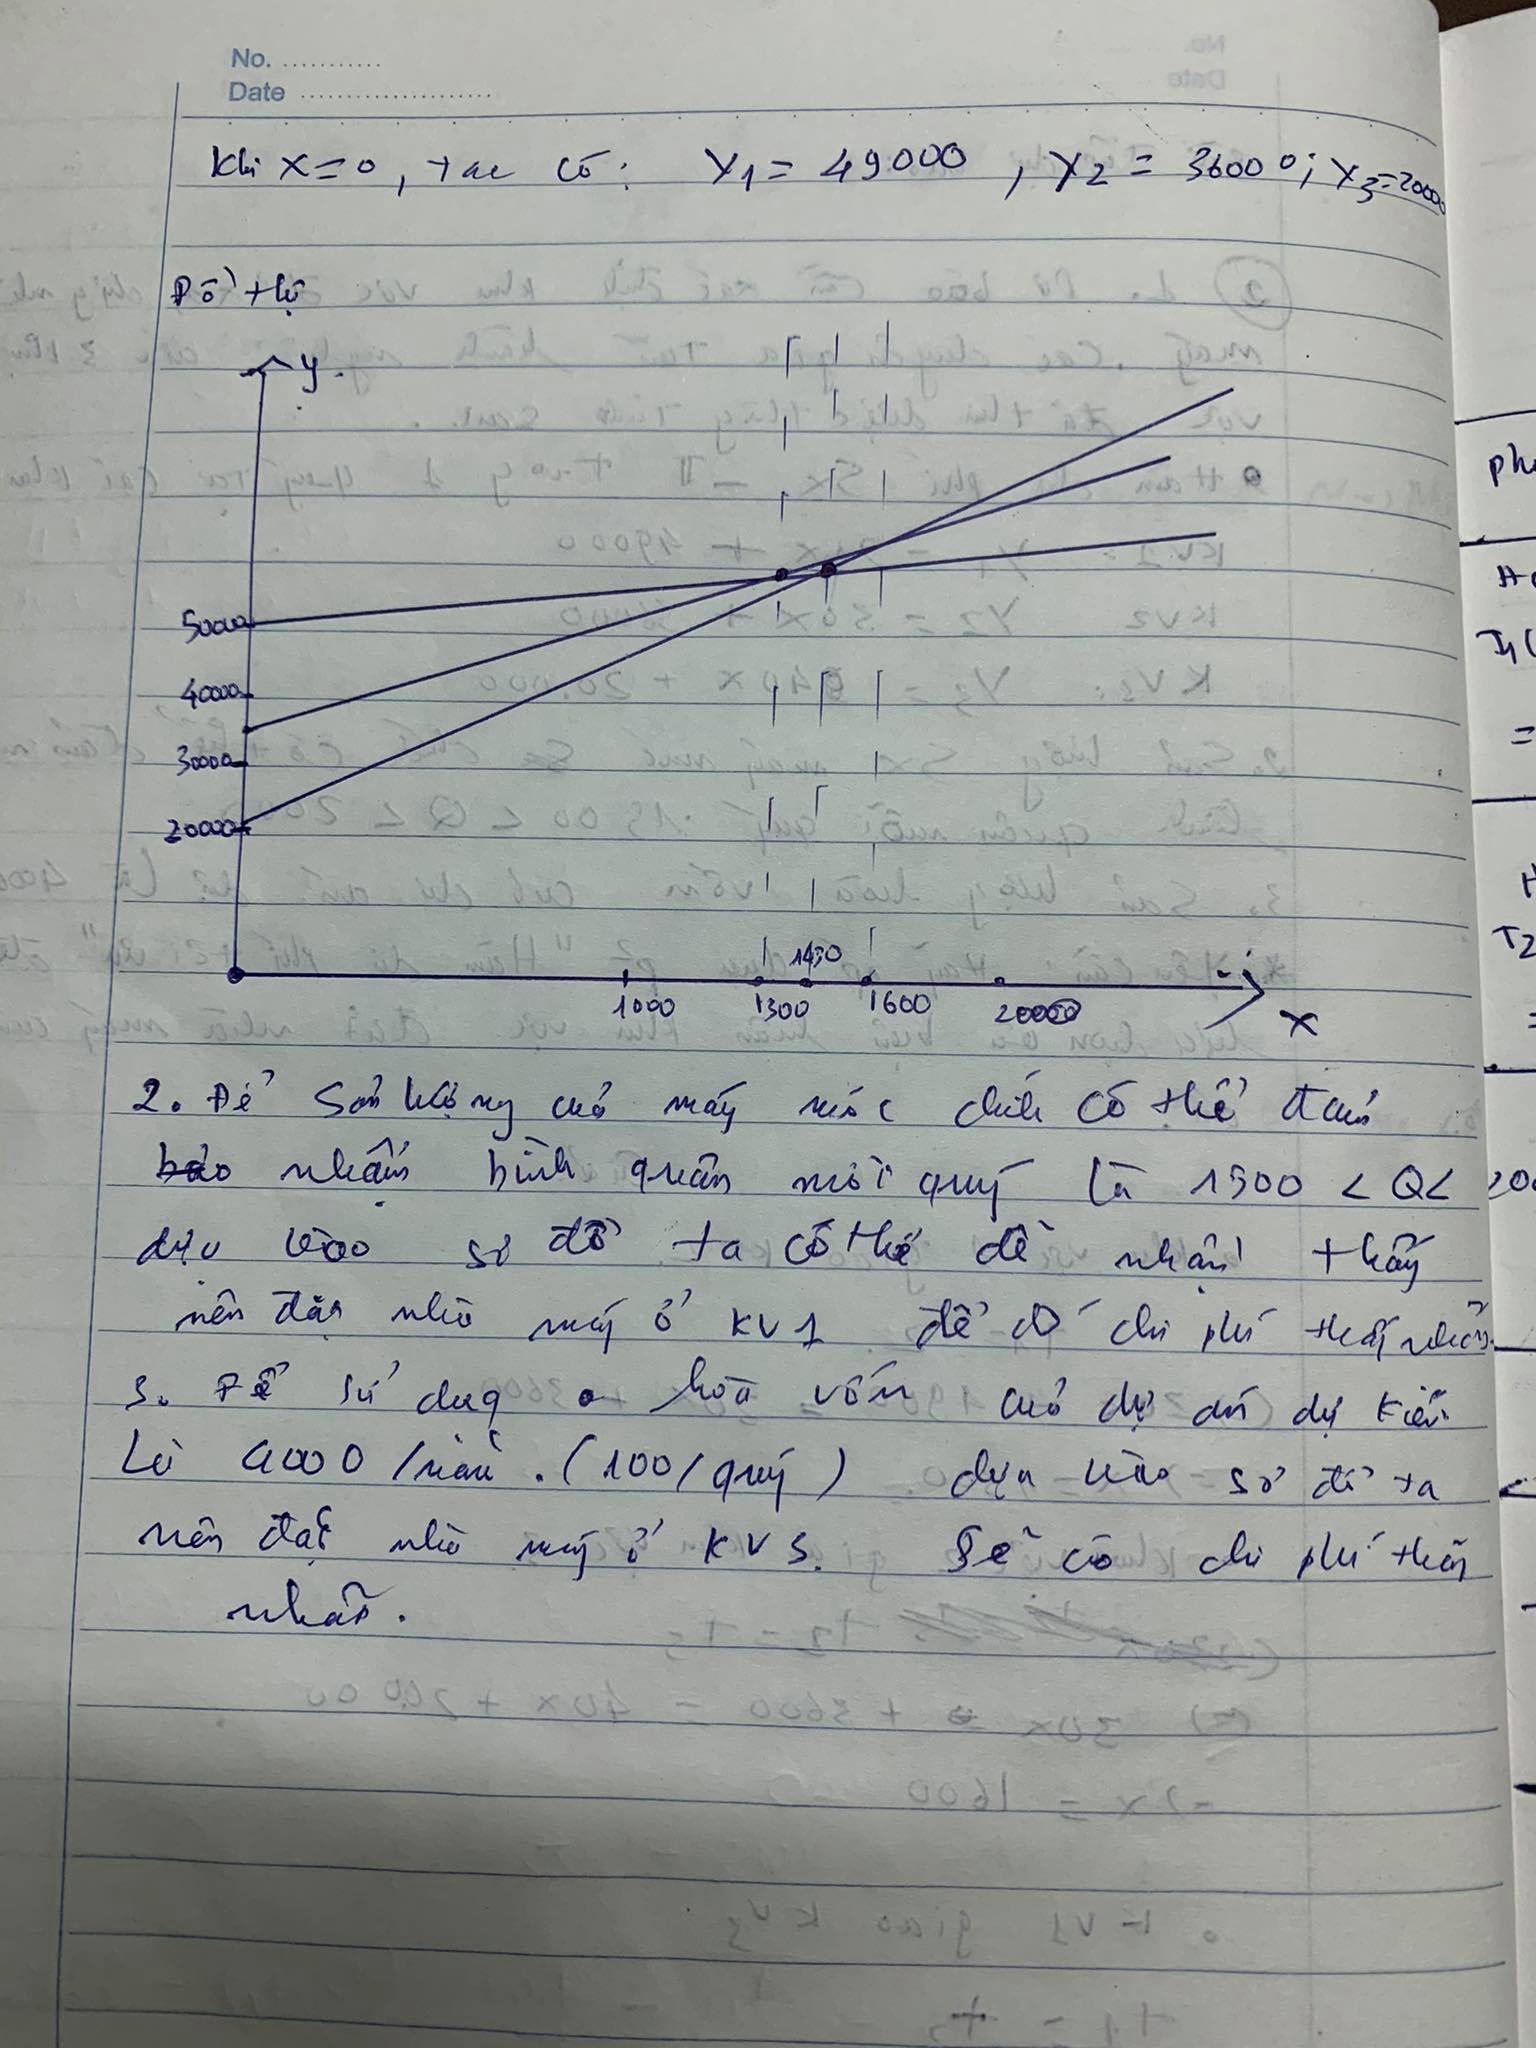 No. ...........
Date ......................
Khi x=0, tac có: Y1 = 49000, Y2 = 36000; Y3=20000
Đồ thị
y.
50000
40000
30000
20000
1430
1000 1300 1600 20000
x
2. Để Sản lượng củả máy móc chính có thể đảm
bảo nhận bình quân mỗi quý là 1500 < Q < 200
dựa vào sơ đồ ta có thể dễ nhận thấy
nên đặt nhà máy ở KV1 để có chi phí thấp nhất.
3. Để sử dụng hòa vốn củả dự án dự kiến
Là 4000/năm. (100/quý) dựa vào sơ đồ ta
nên đặt nhà máy ở KV3. Sẽ có chi phí thấp
nhất.